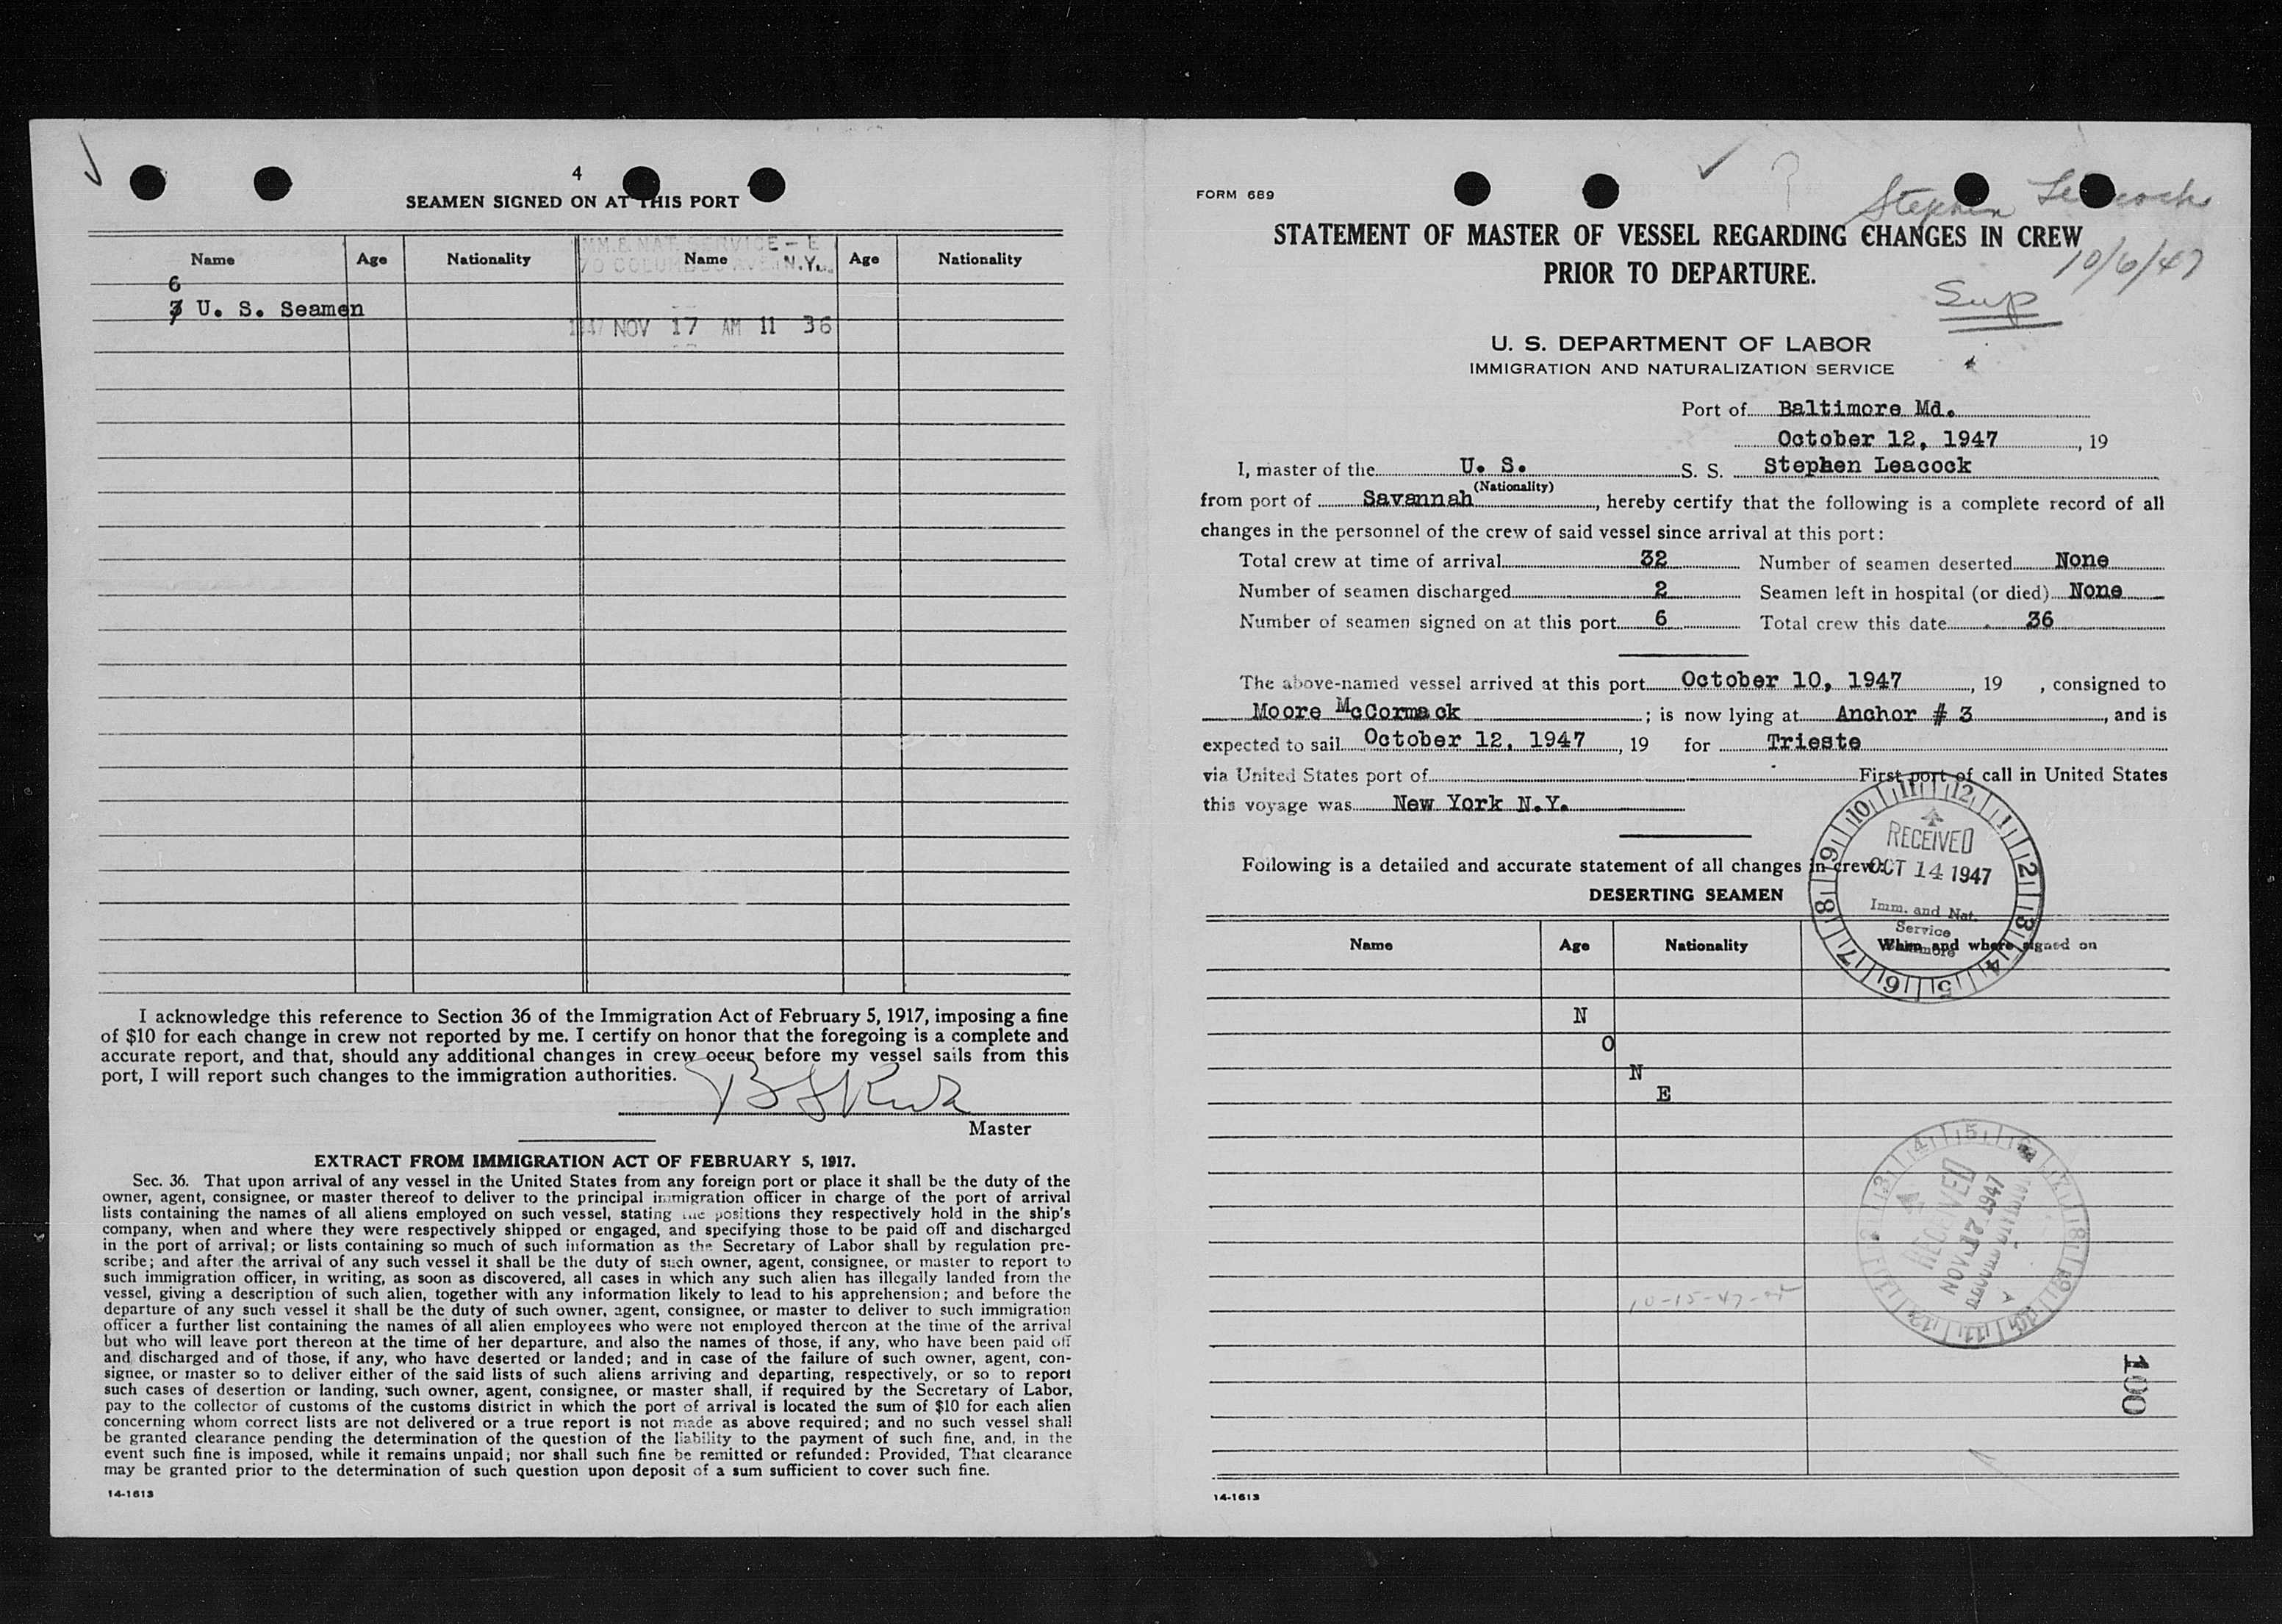 4
SEAMEN SIGNED ON AT THIS PORT
IMM. & NAT. SERVICE - E
70 COLUMBUS AVE N.Y.
Name Age Nationality Name Age Nationality
6
3 U. S. Seamen
1947 NOV 17 AM 11 36
I acknowledge this reference to Section 36 of the Immigration Act of February 5, 1917, imposing a fine
of $10 for each change in crew not reported by me. I certify on honor that the foregoing is a complete and
accurate report, and that, should any additional changes in crew occur before my vessel sails from this
port, I will report such changes to the immigration authorities.
Master
EXTRACT FROM IMMIGRATION ACT OF FEBRUARY 5, 1917.
Sec. 36. That upon arrival of any vessel in the United States from any foreign port or place it shall be the duty of the
owner, agent, consignee, or master thereof to deliver to the principal immigration officer in charge of the port of arrival
lists containing the names of all aliens employed on such vessel, stating the positions they respectively hold in the ship's
company, when and where they were respectively shipped or engaged, and specifying those to be paid off and discharged
in the port of arrival; or lists containing so much of such information as the Secretary of Labor shall by regulation pre-
scribe; and after the arrival of any such vessel it shall be the duty of such owner, agent, consignee, or master to report to
such immigration officer, in writing, as soon as discovered, all cases in which any such alien has illegally landed from the
vessel, giving a description of such alien, together with any information likely to lead to his apprehension; and before the
departure of any such vessel it shall be the duty of such owner, agent, consignee, or master to deliver to such immigration
officer a further list containing the names of all alien employees who were not employed thereon at the time of the arrival
but who will leave port thereon at the time of her departure, and also the names of those, if any, who have been paid off
and discharged and of those, if any, who have deserted or landed; and in case of the failure of such owner, agent, con-
signee, or master so to deliver either of the said lists of such aliens arriving and departing, respectively, or so to report
such cases of desertion or landing, such owner, agent, consignee, or master shall, if required by the Secretary of Labor,
pay to the collector of customs of the customs district in which the port of arrival is located the sum of $10 for each alien
concerning whom correct lists are not delivered or a true report is not made as above required; and no such vessel shall
be granted clearance pending the determination of the question of the liability to the payment of such fine, and, in the
event such fine is imposed, while it remains unpaid; nor shall such fine be remitted or refunded: Provided, That clearance
may be granted prior to the determination of such question upon deposit of a sum sufficient to cover such fine.
14-1613
FORM 689
Stephen Leacock
10/6/47
Sup
STATEMENT OF MASTER OF VESSEL REGARDING CHANGES IN CREW
PRIOR TO DEPARTURE.
U. S. DEPARTMENT OF LABOR
IMMIGRATION AND NATURALIZATION SERVICE
Port of Baltimore Md.
October 12, 1947, 19
I, master of the U. S. S. S. Stephen Leacock
(Nationality)
from port of Savannah, hereby certify that the following is a complete record of all
changes in the personnel of the crew of said vessel since arrival at this port:
Total crew at time of arrival 32 Number of seamen deserted None
Number of seamen discharged 2 Seamen left in hospital (or died) None
Number of seamen signed on at this port 6 Total crew this date 36
The above-named vessel arrived at this port October 10, 1947, 19 , consigned to
Moore McCormack; is now lying at Anchor # 3, and is
expected to sail October 12, 1947, 19 for Trieste
via United States port of First port of call in United States
this voyage was New York N.Y.
Following is a detailed and accurate statement of all changes in crew:
DESERTING SEAMEN
10 11 12 1 2 3 4 5 6 7 8 9
RECEIVED
OCT 14 1947
Imm. and Nat.
Service
Baltimore
Name Age Nationality When and where signed on
N
O
N
E
RECEIVED
10-15-47
100
14-1613